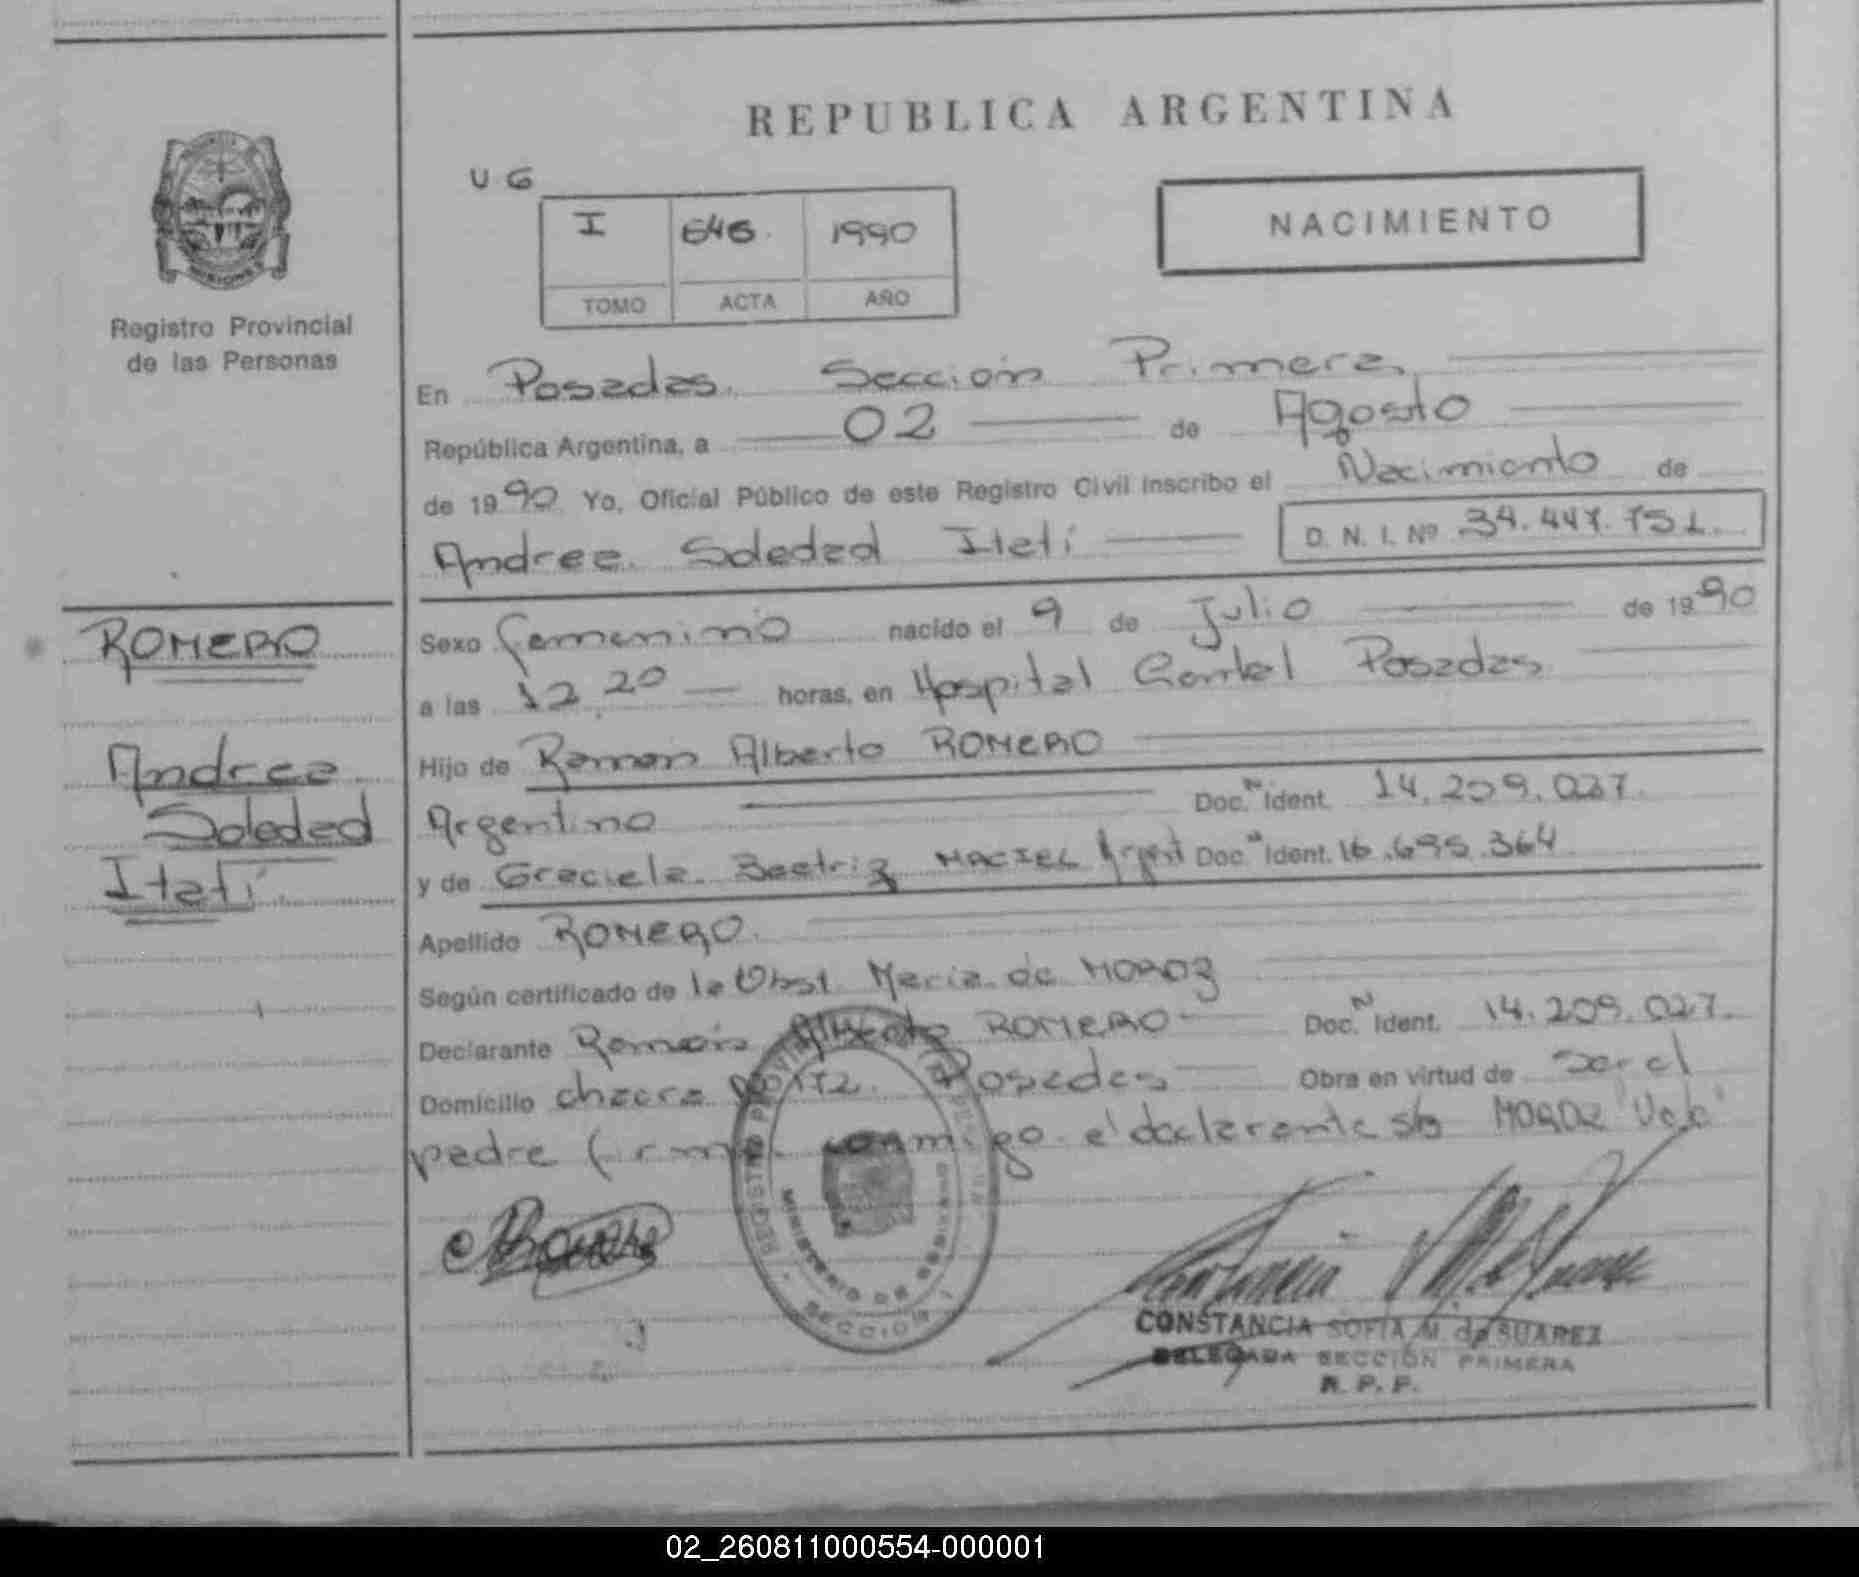 REPUBLICA ARGENTINA
U G
I 646. 1990
TOMO ACTA AÑO
NACIMIENTO
MISIONES
Registro Provincial
de las Personas
En Posadas. Sección Primera
República Argentina, a 02 de Agosto
de 1990 Yo, Oficial Público de este Registro Civil inscribo el Nacimiento de
Andrea Soledad Itatí D. N. I. Nº 34.447.751.
ROMERO
Andrea
Soledad
Itatí
Sexo femenino nacido el 9 de Julio de 1990
a las 12,20 horas, en Hospital Central Posadas
Hijo de Ramón Alberto ROMERO
Argentino Doc. N Ident. 14.209.027.
y de Graciela Beatriz MACIEL Argent Doc. N Ident. 16.695.364
Apellido ROMERO.
Según certificado de la Obst. María de MOROZ
Declarante Ramón Alberto ROMERO Doc. N Ident. 14.209.027.
Domicilio chacra Nº 172. Posadas Obra en virtud de ser el
padre firma conmigo el declarante s/b MOROZ "Vale"
REGISTRO PROVINCIAL DE LAS PERSONAS
MINISTERIO DE GOBIERNO
SECCION 1
CONSTANCIA SOFIA M. de SUAREZ
DELEGADA SECCIÓN PRIMERA
R. P. P.
02_260811000554-000001